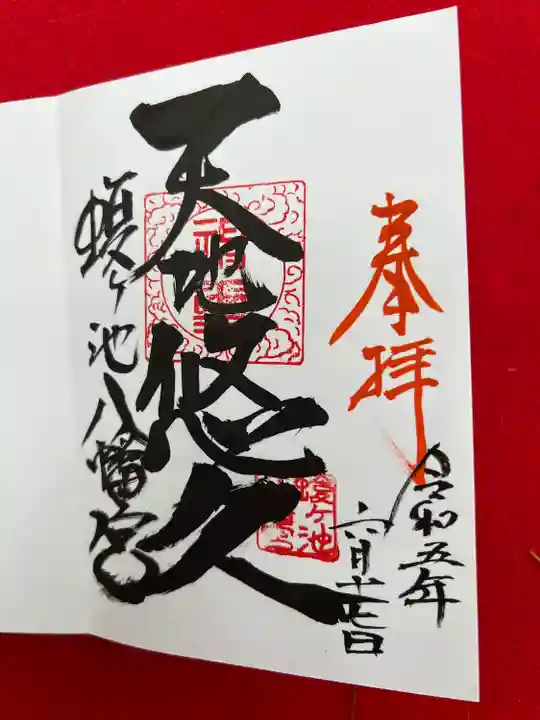 奉拝
令和五年
六月十七日
天地悠久
蝮ヶ池
蝮ヶ池八幡宮